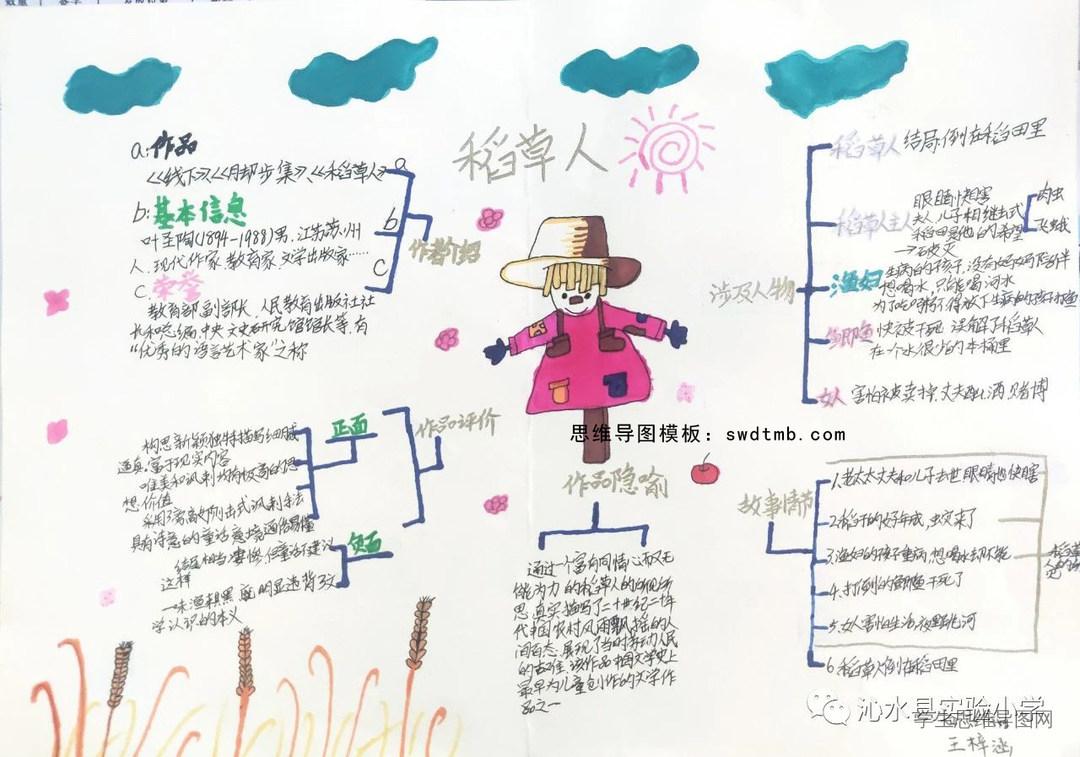 稻草人
a:作品
《线下》、《脚步集》、《稻草人》
b:基本信息
叶圣陶(1894-1988)男,江苏苏州
人,现代作家、教育家、文学出版家……
C.荣誉
教育部副部长、人民教育出版社社
长和总编,中央文史研究馆馆长等,有
“优秀的语言艺术家”之称
a
b
C
作者介绍
作品评价
正面
构思新颖独特描写细腻
逼真,富于现实内容
唯美和讽刺均有极高的思
想价值
具有诗意的童话意境通俗易懂
负面
结局相当凄惨,但童话不建议
这样
一味渲染黑暗,明显违背了文
学认识的本义
思维导图模板:swdtmb.com
作品隐喻
通过一个富有同情心而又无
能为力的稻草人的所见所
思,真实描写了二十世纪二十年
代中国农村风雨飘摇的人
间百态,展现了当时劳动人民
的苦难,该作品中国文学史上
最早为儿童创作的文学作
品之一
涉及人物
稻草人 结局:倒在稻田里
稻草人主人
眼睛快瞎
丈夫、儿子相继去世
稻田是他的希望
→破灭
肉虫
飞蛾
渔妇
生病的孩子,没有妈妈陪伴
想喝水,只能喝河水
鲫鱼
快变干死 误解了稻草人
在一个水很少的木桶里
女人 害怕被卖掉,丈夫酗酒、赌博
故事情节
1.老太太丈夫和儿子去世,眼睛也快瞎
2.稻子的好年成,虫灾来了
3.渔妇的孩子重病,想喝水却不能
4.打到的鲫鱼干死了
5.女人害怕生活,夜里跳河
6.稻草人倒在稻田里
沁水县实验小学
学生思维导图网
王梓涵